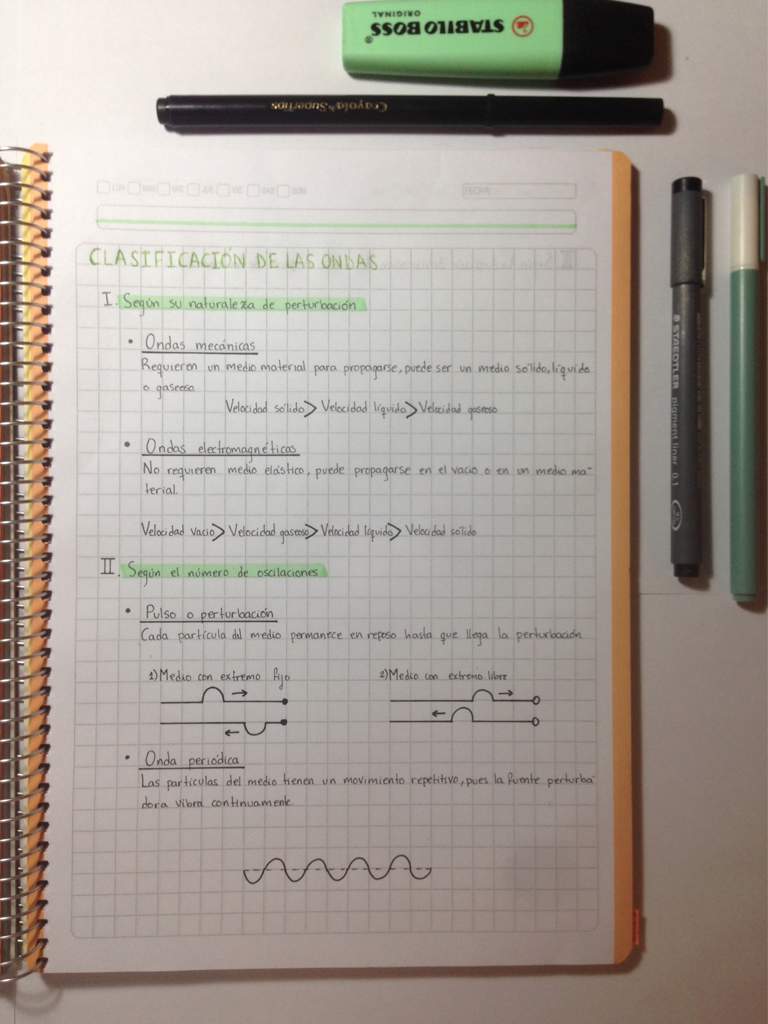 STABILO BOSS
ORIGINAL
Crayola SuperTips
LUN MAR MIE JUE VIE SAB DOM
FECHA
CLASIFICACIÓN DE LAS ONDAS
I. Según su naturaleza de perturbación
• Ondas mecánicas
Requieren un medio material para propagarse, puede ser un medio sólido, líquido
o gaseoso
Velocidad sólido > Velocidad líquido > Velocidad gaseoso
• Ondas electromagnéticas
No requieren medio elástico, puede propagarse en el vacio o en un medio ma-
terial.
Velocidad vacio > Velocidad gaseoso > Velocidad líquido > Velocidad sólido
II. Según el número de oscilaciones
• Pulso o perturbación
Cada partícula del medio permanece en reposo hasta que llega la perturbación
1) Medio con extremo fijo
2) Medio con extremo libre
• Onda periódica
Las partículas del medio tienen un movimiento repetitivo, pues la fuente perturba
dora vibra continuamente.
STAEDTLER pigment liner 0.1